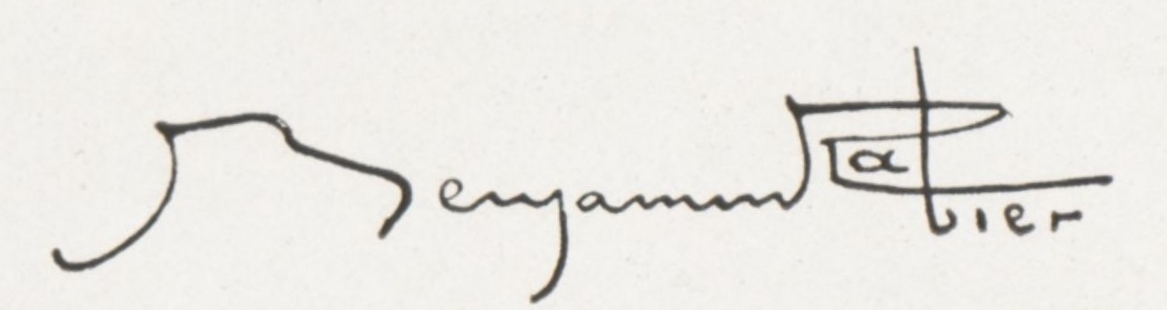 Benjamin Rabier